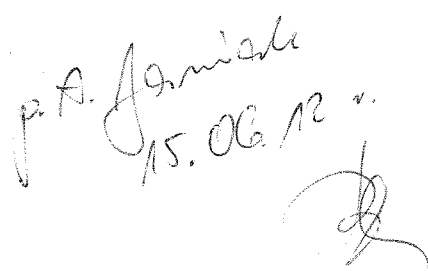 p. A. Jasniak
15.06.12 r.